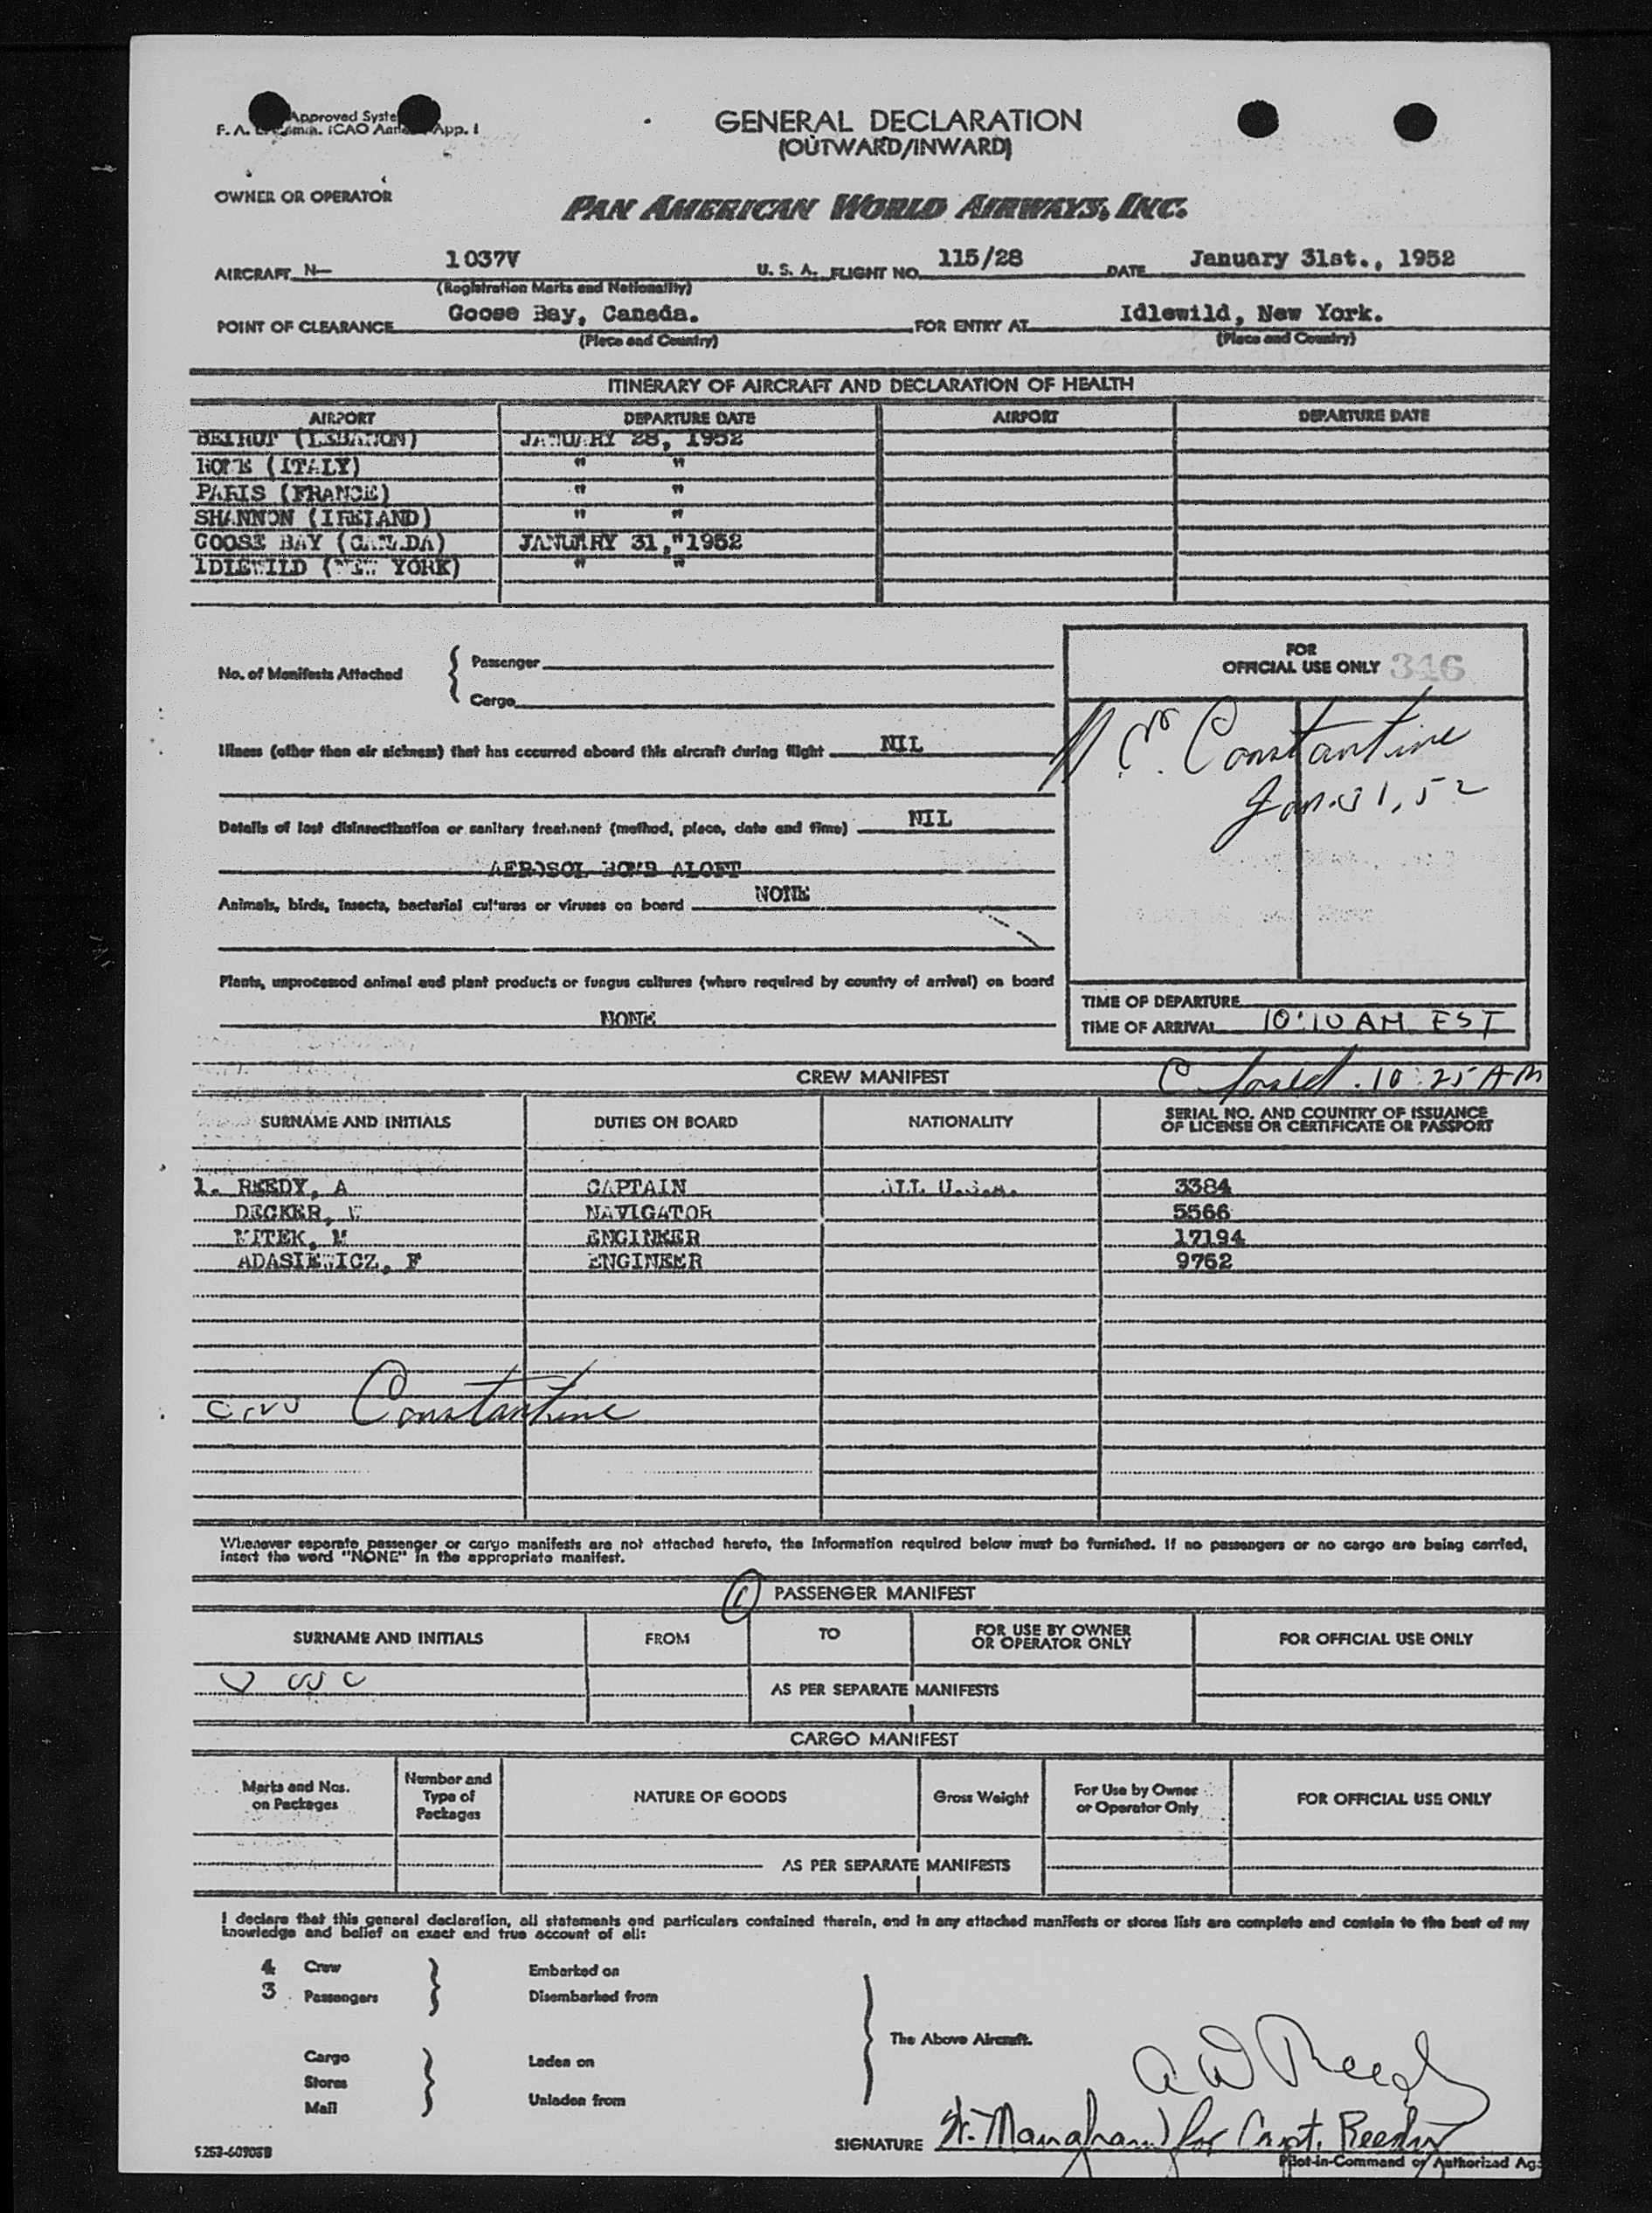 Approved Syste
F. A. L. Comm. ICAO Annex App. I
GENERAL DECLARATION
(OUTWARD/INWARD)
OWNER OR OPERATOR
PAN AMERICAN WORLD AIRWAYS, INC.
AIRCRAFT N— 1037V U. S. A. FLIGHT NO. 115/28 DATE January 31st., 1952
(Registration Marks and Nationality)
POINT OF CLEARANCE Goose Bay, Canada. FOR ENTRY AT Idlewild, New York.
(Place and Country) (Place and Country)
ITINERARY OF AIRCRAFT AND DECLARATION OF HEALTH
AIRPORT DEPARTURE DATE AIRPORT DEPARTURE DATE
BEIRUT (LEBANON) JANUARY 28, 1952
ROME (ITALY) " "
PARIS (FRANCE) " "
SHANNON (IRELAND) " "
GOOSE BAY (CANADA) JANUARY 31,"1952
IDLEWILD (NEW YORK) " "
FOR
OFFICIAL USE ONLY 346
No. of Manifests Attached { Passenger
Cargo
Constantine
Jan. 31, 52
Illness (other than air sickness) that has occurred aboard this aircraft during flight NIL
Details of last disinsectization or sanitary treatment (method, place, date and time) NIL
AEROSOL BOMB ALOFT
Animals, birds, insects, bacterial cultures or viruses on board NONE
Plants, unprocessed animal and plant products or fungus cultures (where required by country of arrival) on board
NONE
TIME OF DEPARTURE
TIME OF ARRIVAL 10:10 AM EST
CREW MANIFEST 10:25 AM
SURNAME AND INITIALS DUTIES ON BOARD NATIONALITY SERIAL NO. AND COUNTRY OF ISSUANCE
OF LICENSE OR CERTIFICATE OR PASSPORT
1. REEDY, A CAPTAIN ALL U.S.A. 3384
DECKER, W NAVIGATOR 5566
MITEK, M ENGINEER 17194
ADASIEWICZ, F ENGINEER 9762
Constantine
Whenever separate passenger or cargo manifests are not attached hereto, the information required below must be furnished. If no passengers or no cargo are being carried,
insert the word "NONE" in the appropriate manifest.
(1) PASSENGER MANIFEST
SURNAME AND INITIALS FROM TO FOR USE BY OWNER
OR OPERATOR ONLY FOR OFFICIAL USE ONLY
AS PER SEPARATE MANIFESTS
CARGO MANIFEST
Marks and Nos.
on Packages Number and
Type of
Packages NATURE OF GOODS Gross Weight For Use by Owner
or Operator Only FOR OFFICIAL USE ONLY
AS PER SEPARATE MANIFESTS
I declare that this general declaration, all statements and particulars contained therein, and in any attached manifests or stores lists are complete and contain to the best of my
knowledge and belief an exact and true account of all:
4 Crew Embarked on
3 Passengers Disembarked from
The Above Aircraft.
Cargo Laden on
Stores
Mail Unladen from
A W Reedy
SIGNATURE for Capt. Reedy
Pilot-in-Command or Authorized Ag
5253-60905B